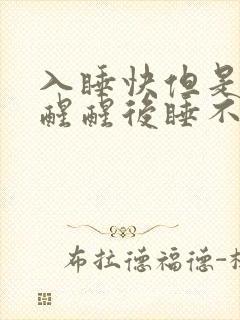 入睡快但是
醒醒後睡不
布拉德福德-